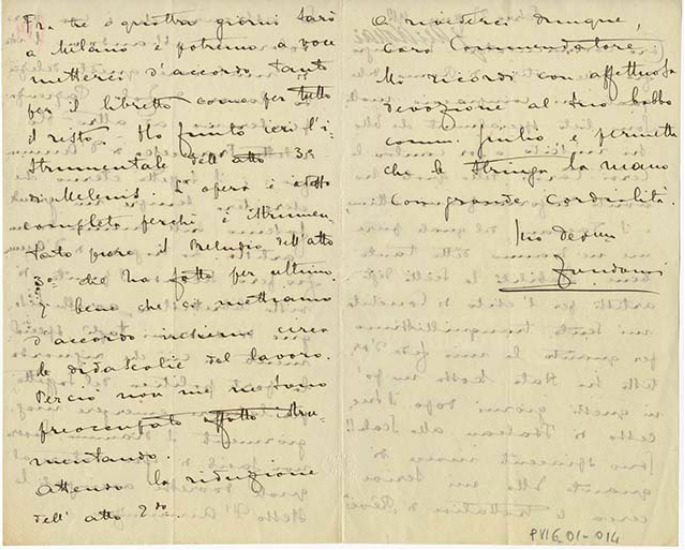 Fra tre o quattro giorni sarò
a Milano e potremo a voce
metterci d'accordo tanto
per il libretto come per tutto
il resto. Ho finito ieri l'i-
strumentale dell'atto 3º
di Melenis. L'opera è adesso
completa perché è istrumen-
tato pure il Preludio dell'atto
3º che ho fatto per ultimo.
È bene che ci mettiamo
d'accordo insieme circa
le didascalie del lavoro.
Perciò non me ne sono
preoccupato affatto stru-
mentando.
Attendo la riduzione
dell'atto 2do.
A rivederci dunque,
caro Commendatore.
Mi ricordi con affettuosa
devozione al Suo babbo
comm. Giulio e permetta
che le stringa la mano
con grande cordialità.
Suo
Zandonai
PVIG.01-014